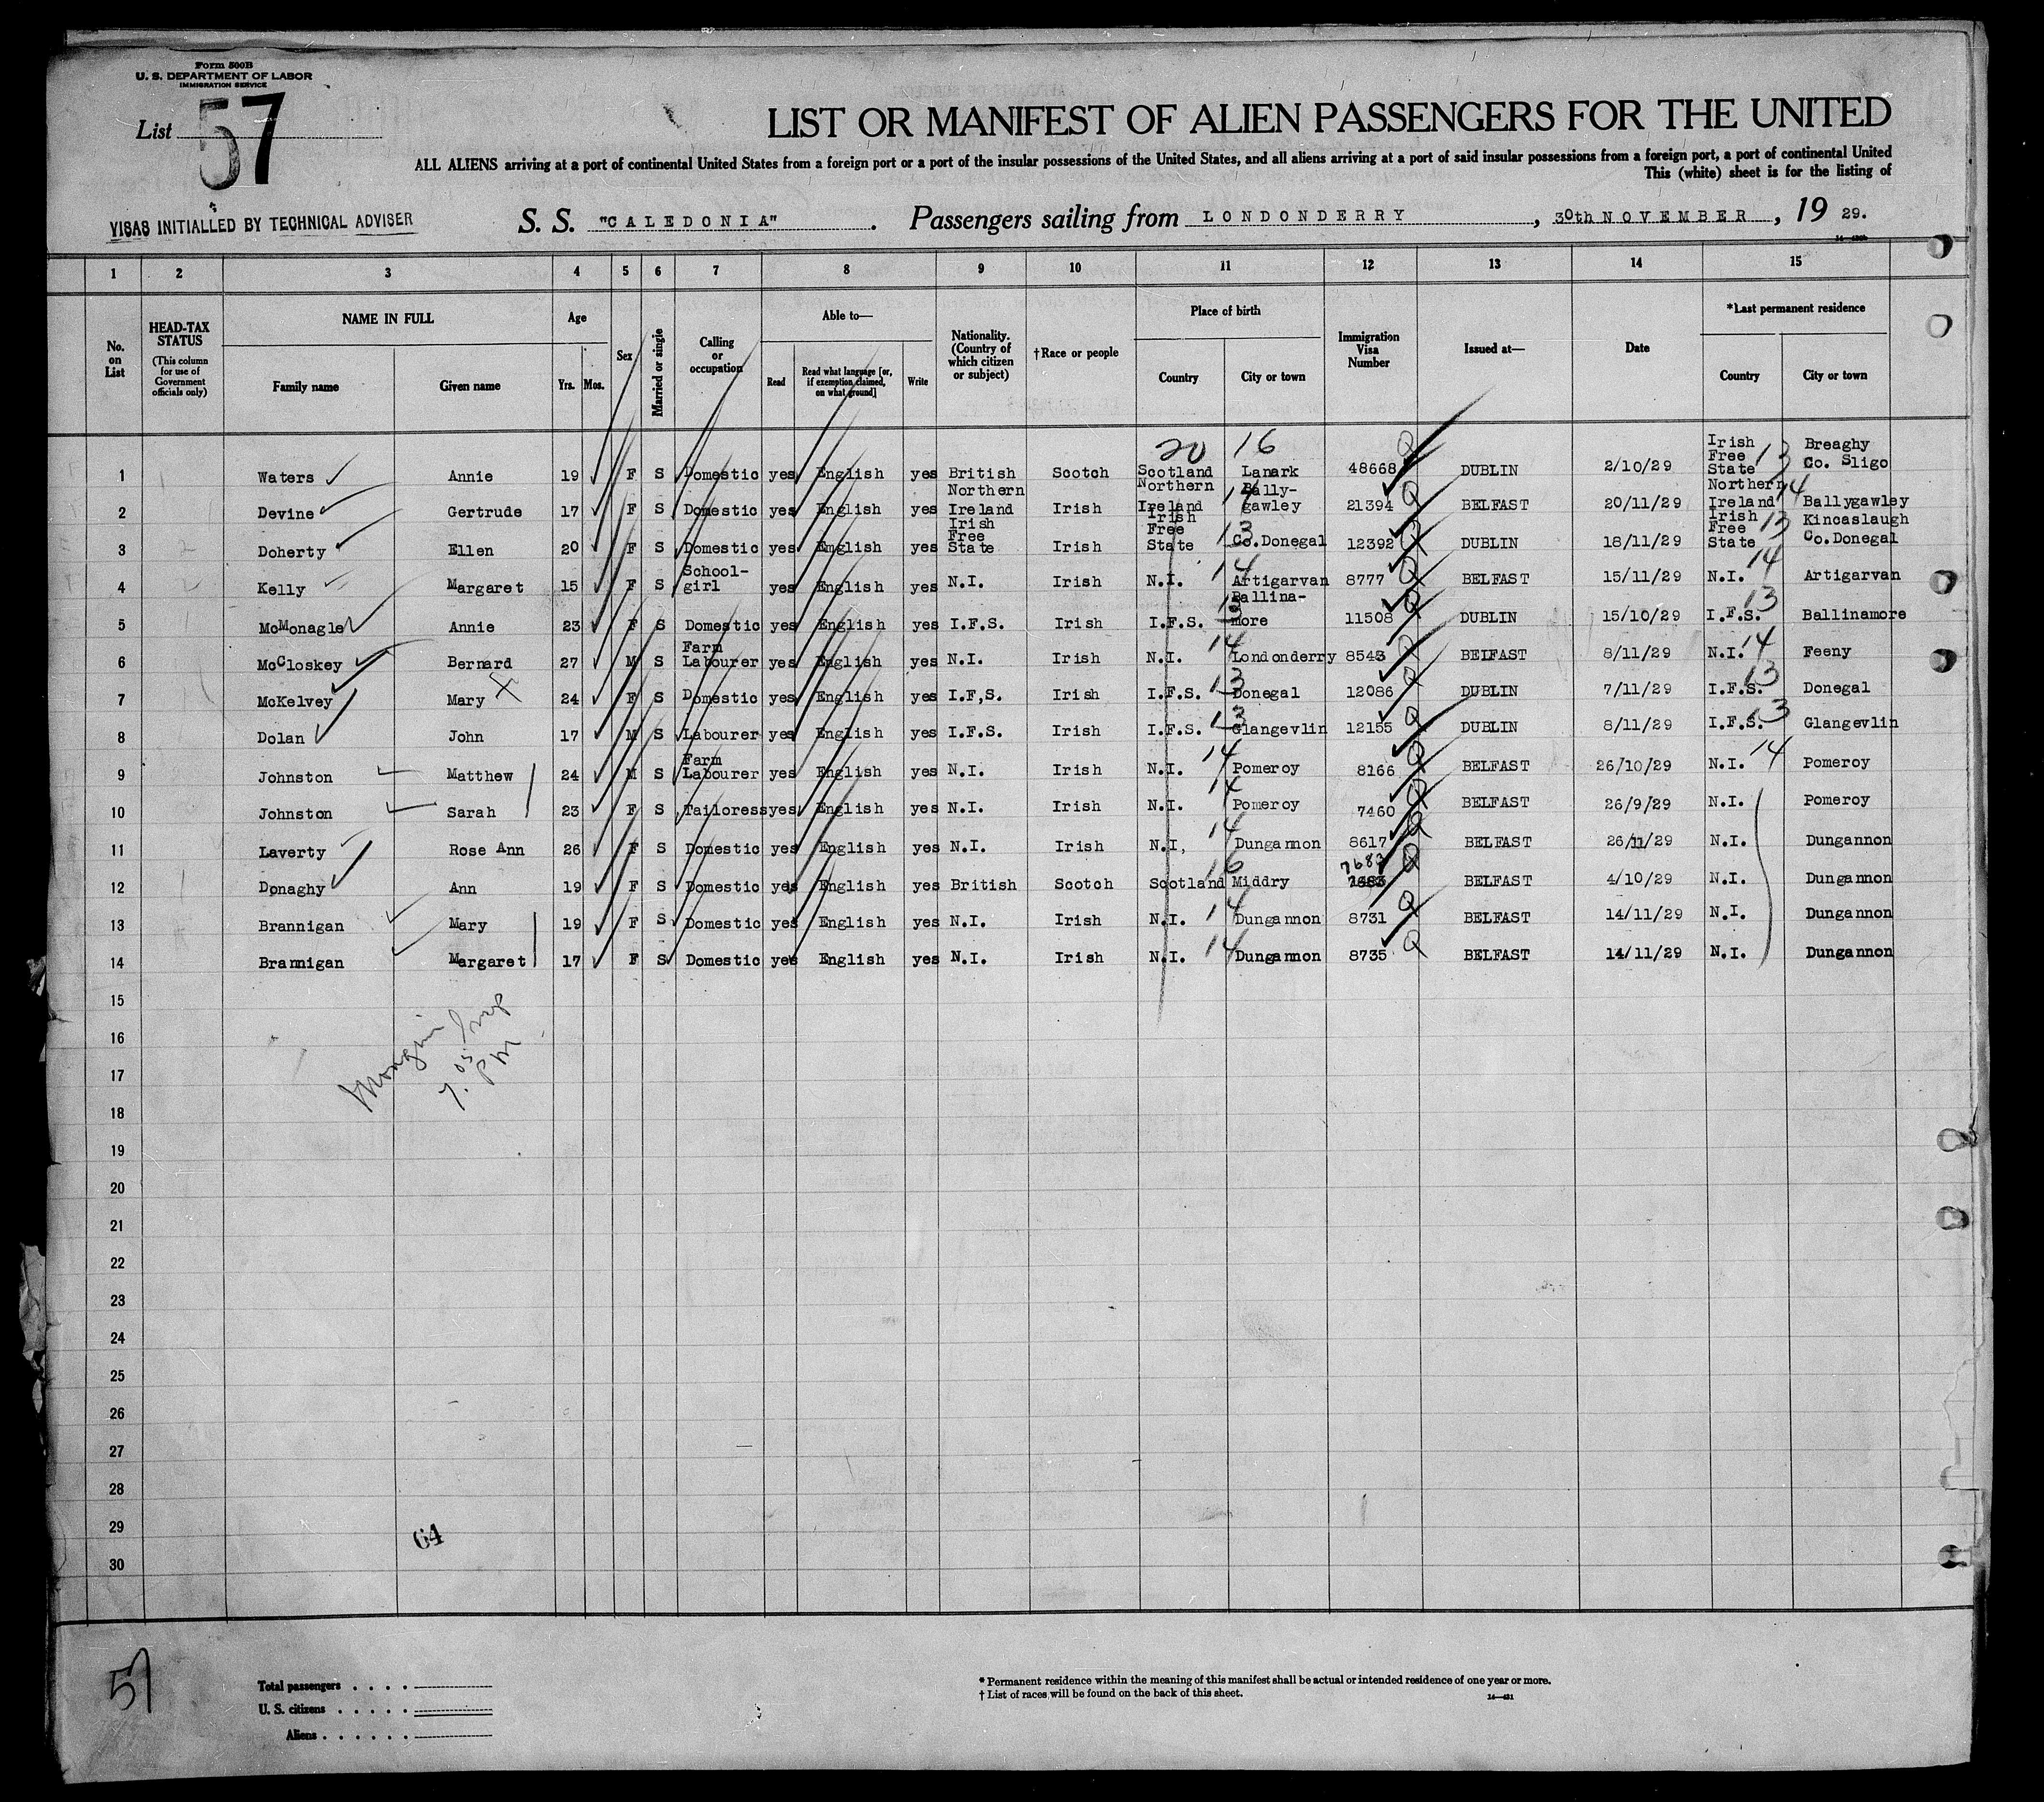 Form 500B
U. S. DEPARTMENT OF LABOR
IMMIGRATION SERVICE
List 57
LIST OR MANIFEST OF ALIEN PASSENGERS FOR THE UNITED
ALL ALIENS arriving at a port of continental United States from a foreign port or a port of the insular possessions of the United States, and all aliens arriving at a port of said insular possessions from a foreign port, a port of continental United
This (white) sheet is for the listing of
VISAS INITIALLED BY TECHNICAL ADVISER
S. S. "CALEDONIA". Passengers sailing from LONDONDERRY, 30th NOVEMBER, 19 29.
1 2 3 4 5 6 7 8 9 10 11 12 13 14 15
No. on List
HEAD-TAX STATUS
(This column for use of Government officials only)
NAME IN FULL
Family name Given name
Age
Yrs. Mos.
Sex
Married or single
Calling or occupation
Able to—
Read
Read what language [or, if exemption claimed, on what ground]
Write
Nationality. (Country of which citizen or subject)
†Race or people
Place of birth
Country City or town
Immigration Visa Number
Issued at—
Date
*Last permanent residence
Country City or town
20 16
1 Waters Annie 19 F S Domestic yes English yes British Scotch Scotland Lanark 48668 Q DUBLIN 2/10/29 Irish Free State 13 Breaghy Co. Sligo
2 Devine Gertrude 17 F S Domestic yes English yes Northern Ireland Irish Northern Ireland 14 Bally-gawley 21394 Q BELFAST 20/11/29 Northern Ireland 14 Ballygawley
3 Doherty Ellen 20 F S Domestic yes English yes Irish Free State Irish Irish Free State 13 Co.Donegal 12392 Q DUBLIN 18/11/29 Irish Free State 13 Kincaslaugh Co.Donegal
4 Kelly Margaret 15 F S School-girl yes English yes N.I. Irish N.I. 14 Artigarvan 8777 Q BELFAST 15/11/29 N.I. 14 Artigarvan
5 McMonagle Annie 23 F S Domestic yes English yes I.F.S. Irish I.F.S. 13 Ballina-more 11508 Q DUBLIN 15/10/29 I.F.S. 13 Ballinamore
6 McCloskey Bernard 27 M S Farm Labourer yes English yes N.I. Irish N.I. 14 Londonderry 8543 Q BELFAST 8/11/29 N.I. 14 Feeny
7 McKelvey Mary X 24 F S Domestic yes English yes I.F,S. Irish I.F.S. 13 Donegal 12086 Q DUBLIN 7/11/29 I.F.S. 13 Donegal
8 Dolan John 17 M S Labourer yes English yes I.F.S. Irish I.F.S. 13 Glangevlin 12155 Q DUBLIN 8/11/29 I.F.S. 13 Glangevlin
9 Johnston Matthew 24 M S Farm Labourer yes English yes N.I. Irish N.I. 14 Pomeroy 8166 Q BELFAST 26/10/29 N.I. 14 Pomeroy
10 Johnston Sarah 23 F S Tailoress yes English yes N.I. Irish N.I. 14 Pomeroy 7460 Q BELFAST 26/9/29 N.I. Pomeroy
11 Laverty Rose Ann 26 F S Domestic yes English yes N.I. Irish N.I, 14 Dungannon 8617 Q BELFAST 26/11/29 N.I. Dungannon
12 Donaghy Ann 19 F S Domestic yes English yes British Scotch Scotland 16 Middry 7683 Q BELFAST 4/10/29 N.I. Dungannon
13 Brannigan Mary 19 F S Domestic yes English yes N.I. Irish N.I. 14 Dungannon 8731 Q BELFAST 14/11/29 N.I. Dungannon
14 Brannigan Margaret 17 F S Domestic yes English yes N.I. Irish N.I. 14 Dungannon 8735 Q BELFAST 14/11/29 N.I. Dungannon
15
16
17
7.05
PM
18
19
20
21
22
23
24
25
26
27
28
29
64
30
57
Total passengers
U. S. citizens
Aliens
* Permanent residence within the meaning of this manifest shall be actual or intended residence of one year or more.
† List of races will be found on the back of this sheet.
14—431